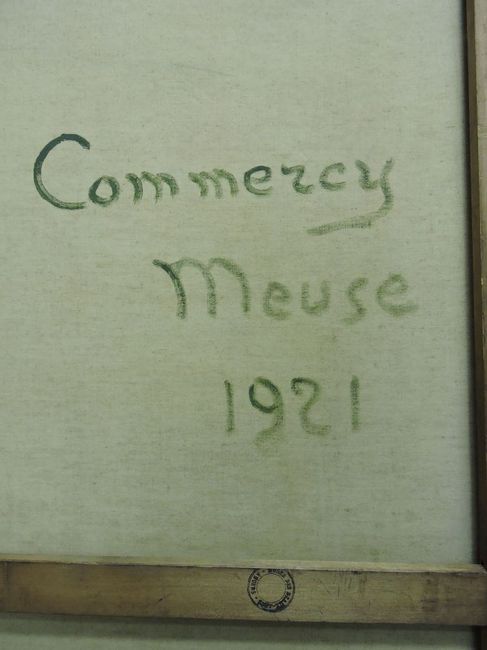 Commercy
Meuse
1921